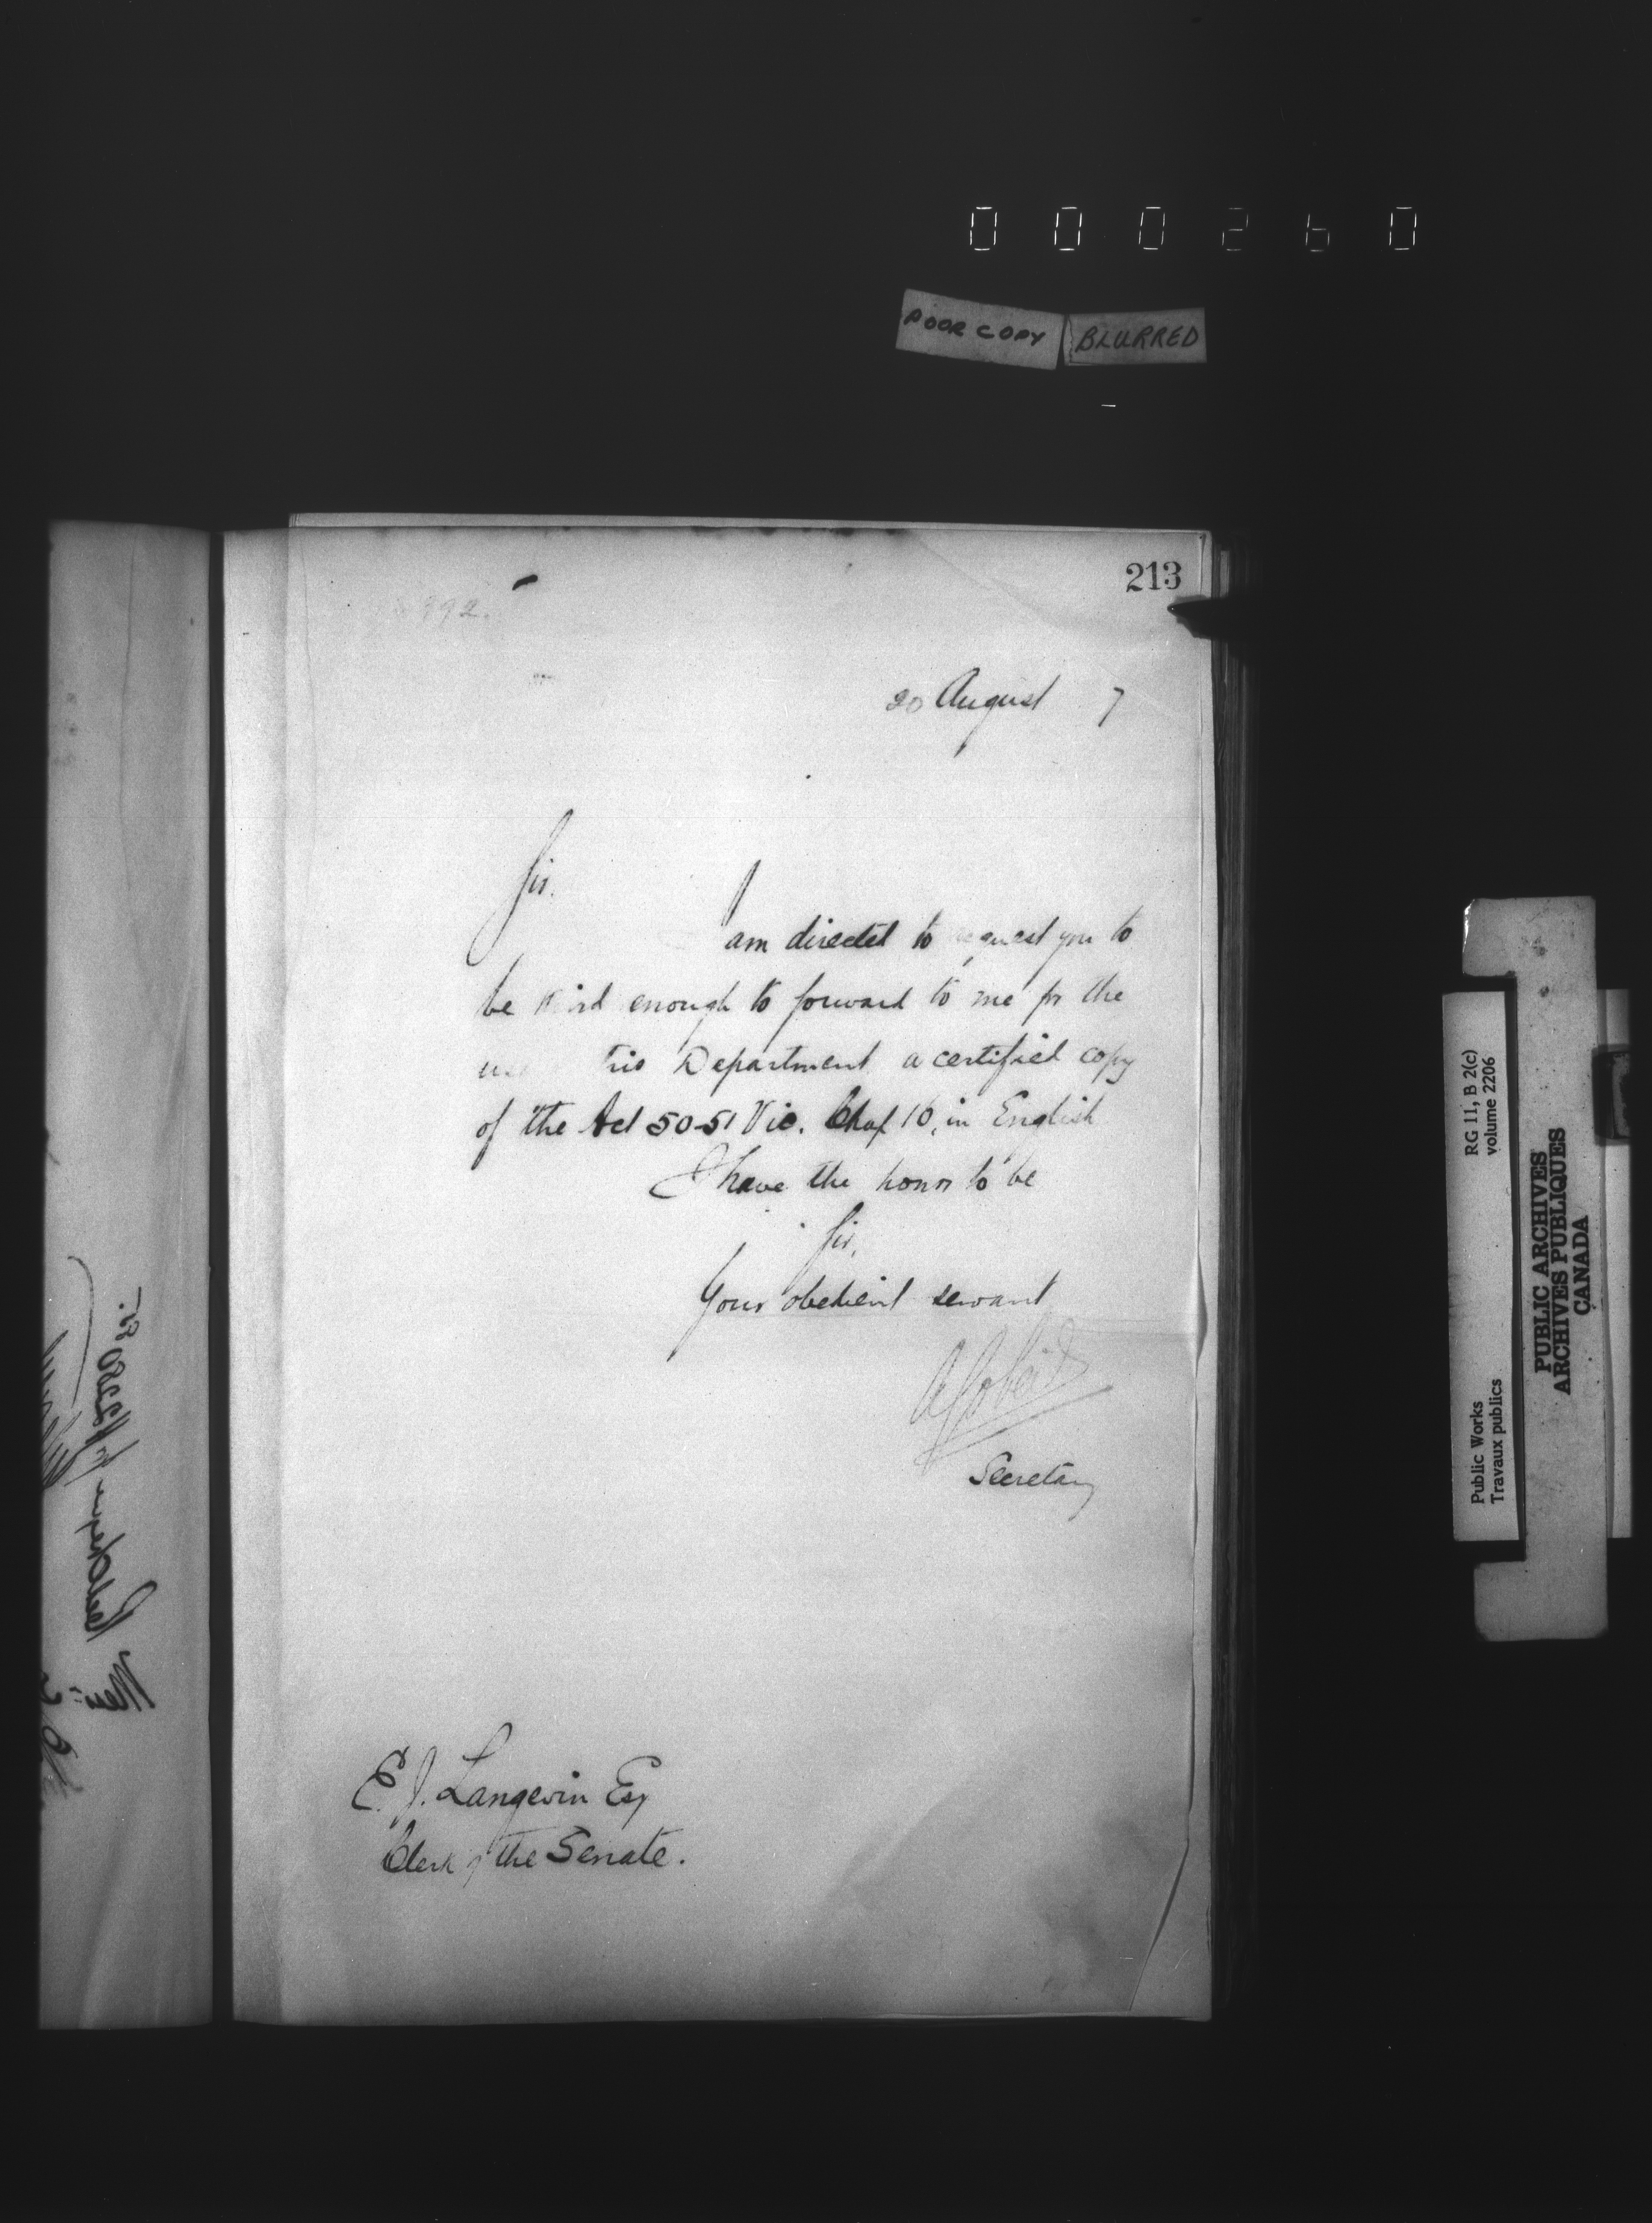 000260
POOR COPY BLURRED
213
992.
20 August 7
Sir.
I
am directed to request you to
be kind enough to forward to me for the
use this Department a certified copy
of the Act 50-51 Vic. Chap 16, in English
I have the honor to be
Sir,
Your obedient servant
A Gobeil
Secretary
E. J. Langevin Esq
Clerk of the Senate.
Public Works
Travaux publics
RG 11, B 2(c)
volume 2206
PUBLIC ARCHIVES
ARCHIVES PUBLIQUES
CANADA